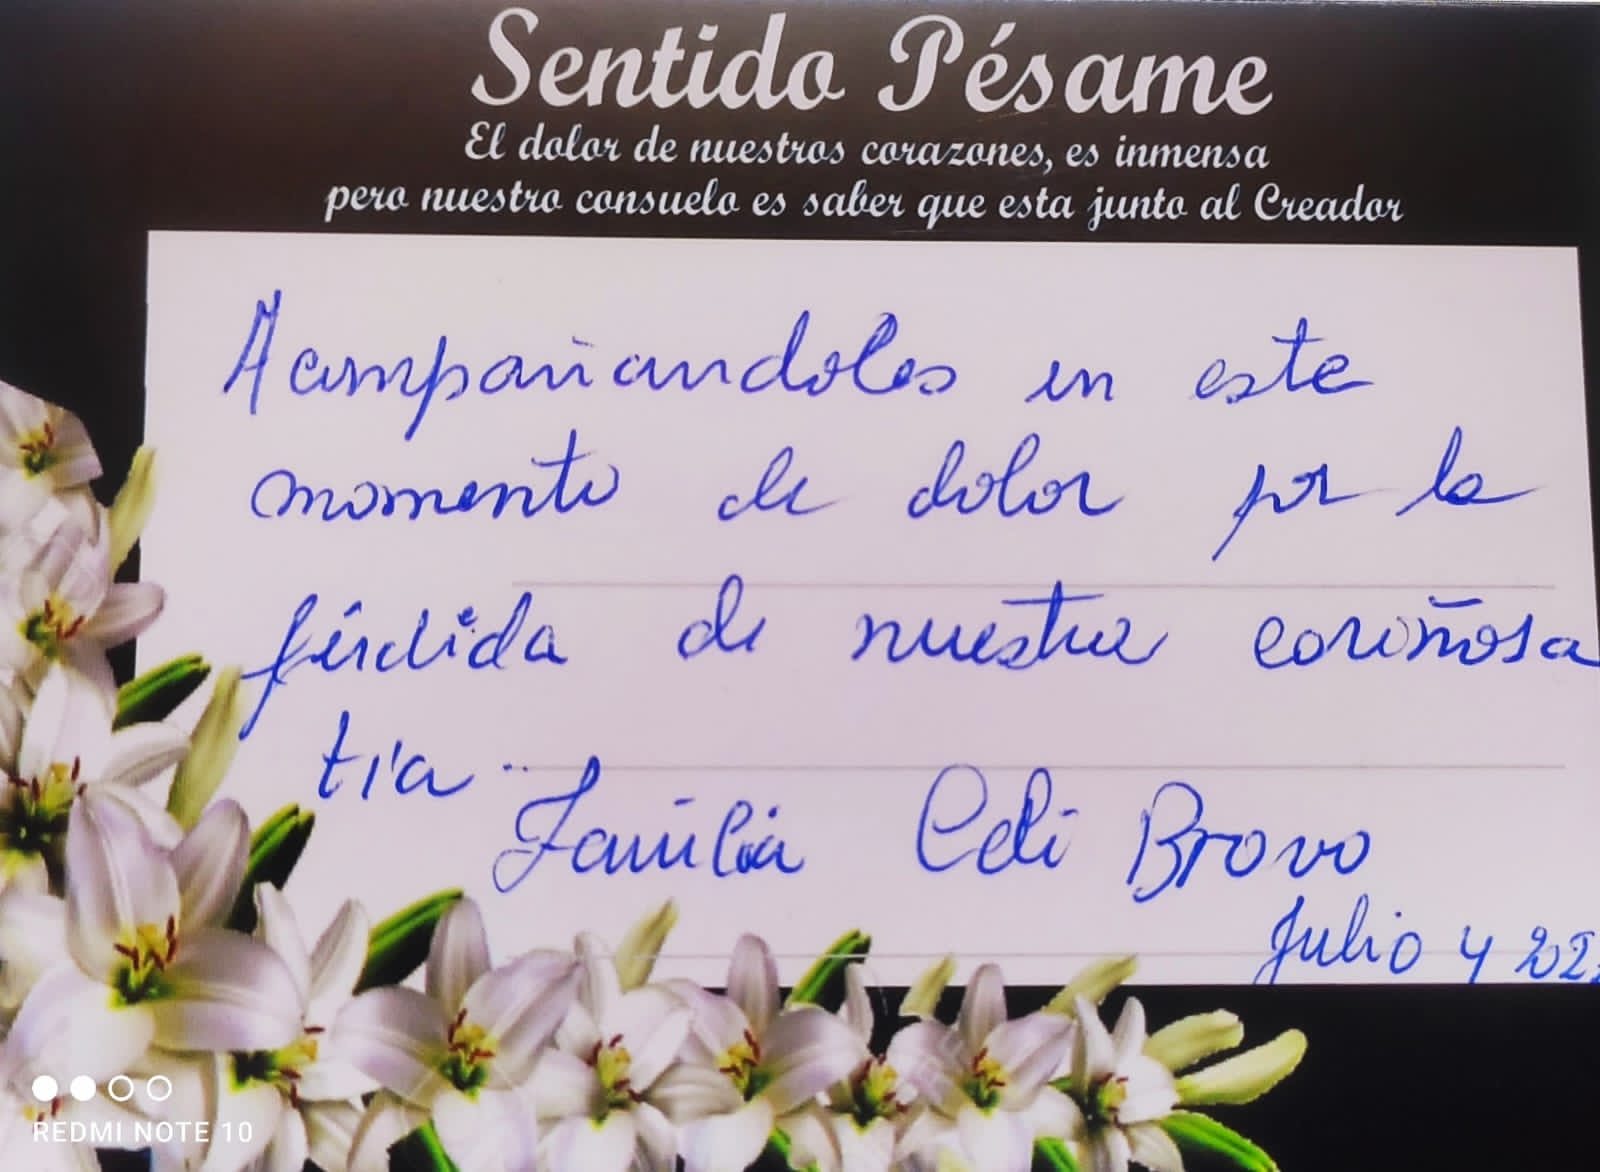 Sentido Pésame
El dolor de nuestros corazones, es inmensa
pero nuestro consuelo es saber que esta junto al Creador
Acompañandoles en este
momento de dolor por la
pérdida de nuestra cariñosa
tía
Familia Celi Bravo
Julio 4
REDMI NOTE 10